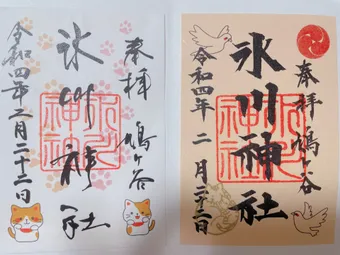 奉拝 鳩ヶ谷
氷川神社
氷川
神社
令和四年 二月二十二日
奉拝 鳩ヶ谷
氷川神社
氷川
神社
令和四年二月二十二日